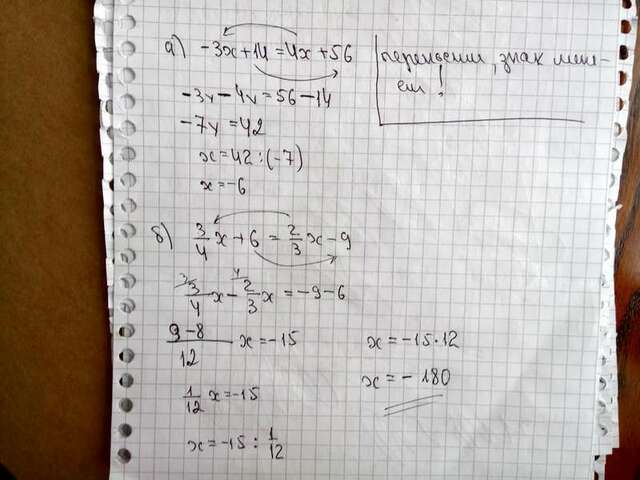 а) -3x+14=4x+56
переносим, знак меня-
ем!
-3x-4x=56-14
-7x=42
x=42:(-7)
x=-6
б) 3/4 x+6=2/3 x-9
3/4 x - 2/3 x = -9-6
9-8/12 x=-15
1/12 x=-15
x=-15:1/12
x=-15·12
x=-180